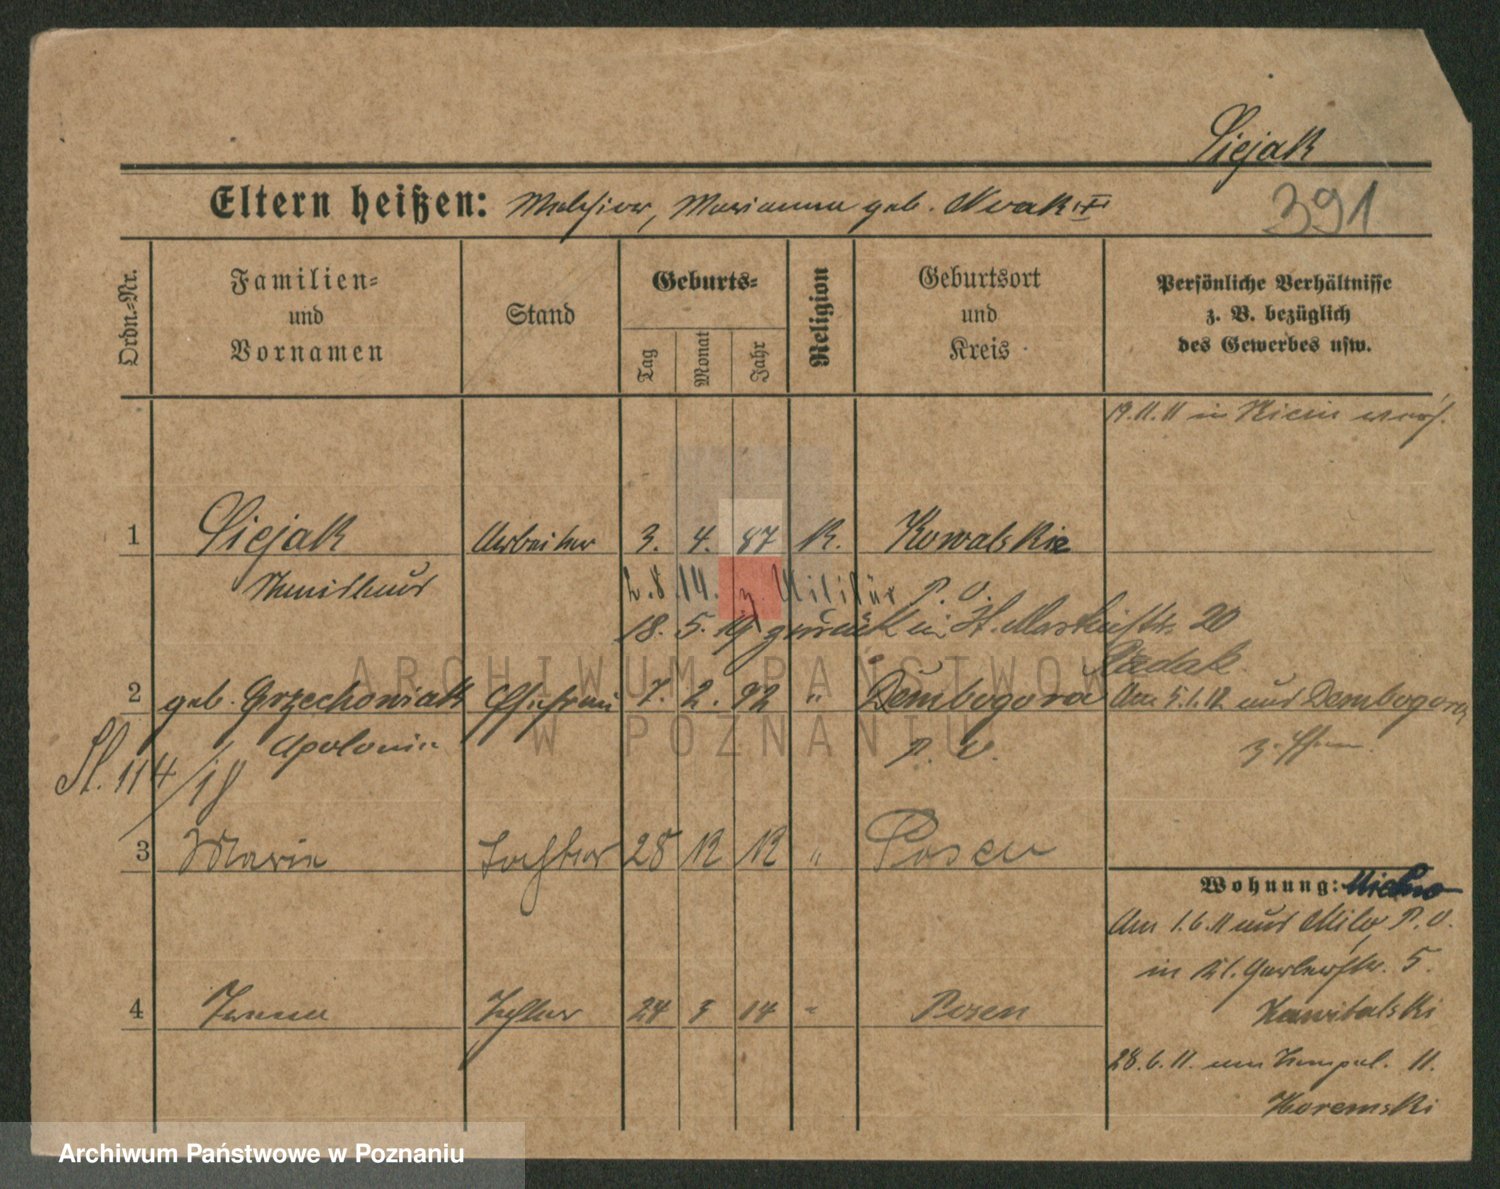 Siejak
Eltern heißen: Melchior, Marianna geb. Nvak
391
Ordn.-Nr.
Familien-
und
Vornamen
Stand
Geburts-
Tag
Monat
Jahr
Religion
Geburtsort
und
Kreis
Persönliche Verhältnisse
z. B. bezüglich
des Gewerbes usw.
19.11.11 in
1 Siejak Arbeiter 3. 4. 87 K. Kowalskie
2.8.14. z. Militär P. O.
18. 5. 19 zurück in 20
2 geb. Grzechowiak Ehefrau 7. 2. 92 " Dembogora Am 5.1.12 aus Dembogora
Apolonia P. O.
114/18
3 Maria Tochter 28 12 12 " Posen
Wohnung:
Am 1.6.11 aus P. O.
in Gerberstr. 5.
4 Tochter 24 3 14 " Posen
28.6.11. 11.
Koremski
ARCHIWUM PAŃSTWOWE
W POZNANIU
Archiwum Państwowe w Poznaniu